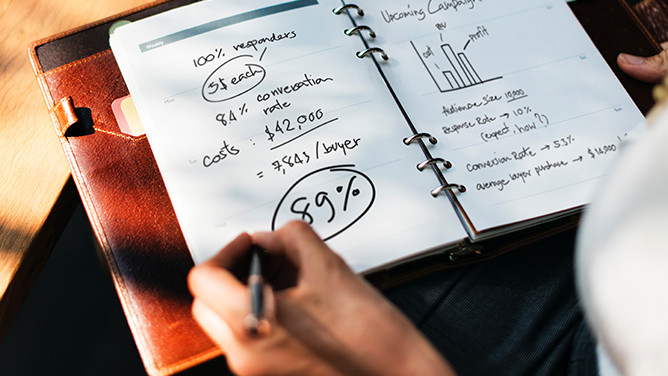 Weekly
100% responders
5$ each
84% conversation
rate
costs : $42,000
= 7,843 / buyer
89%
Upcoming Campaign
cost
profit
Audience Size 10,000
Response Rate → 10%
(expect, how?)
Conversion Rate → 5.3%
average layer purchase → $14,000